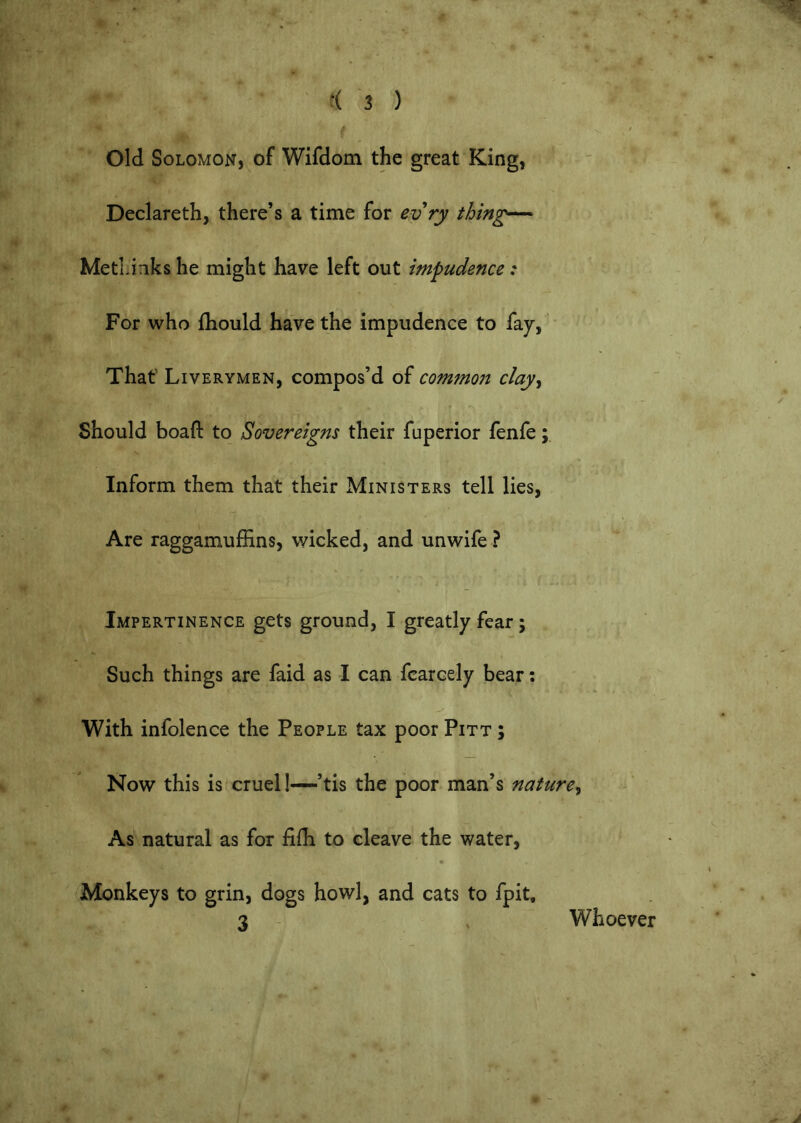 ( 3 )
Old Solomon, of Wiſdom the great King,
Declareth, there's a time for ev'ry thing—
Methinks he might have left out impudence:
For who ſhould have the impudence to ſay,
That Liverymen, compos'd of common clay,
Should boaſt to Sovereigns their ſuperior ſenſe;
Inform them that their Ministers tell lies,
Are raggamuffins, wicked, and unwiſe?
Impertinence gets ground, I greatly fear;
Such things are ſaid as I can ſcarcely bear:
With inſolence the People tax poor Pitt;
Now this is cruel!—'tis the poor man's nature,
As natural as for fiſh to cleave the water,
Monkeys to grin, dogs howl, and cats to ſpit.
3 Whoever